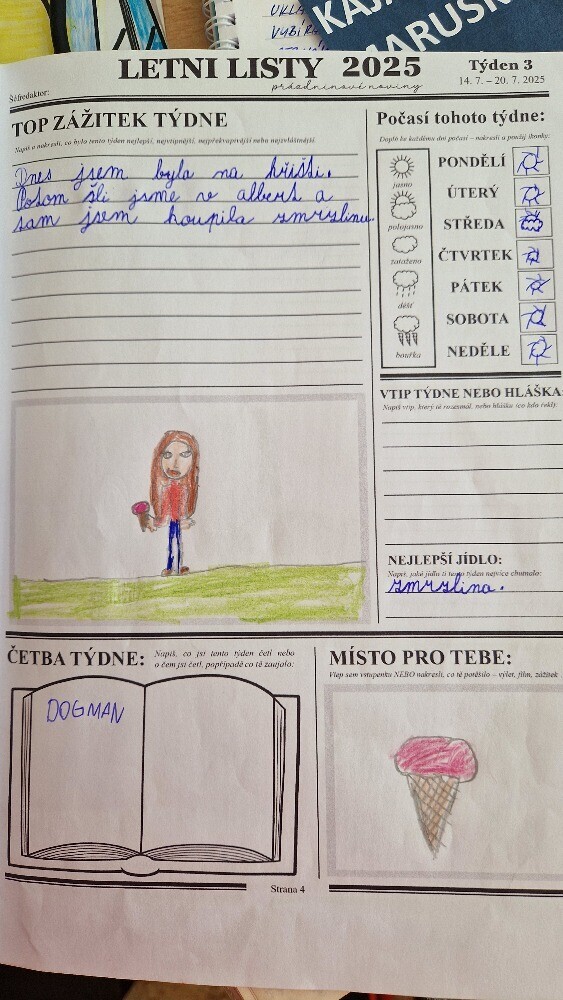 UKLA
VYBÍR
KAJ
MARUSK
LETNI LISTY 2025
prázdninové noviny
Týden 3
14. 7. – 20. 7. 2025
Šéfredaktor:
TOP ZÁŽITEK TÝDNE
Napiš a nakresli, co bylo tento týden nejlepší, nejvtipnější, nejpřekvapivější nebo nejzvláštnější
Dnes jsem byla na hřišti.
Potom šli jsme v albert a
sam jsem koupila zmrzlinu.
Počasí tohoto týdne:
Doplň ke každému dni počasí – nakresli a použij ikonky:
jasno
polojasno
zataženo
déšť
bouřka
PONDĚLÍ
ÚTERÝ
STŘEDA
ČTVRTEK
PÁTEK
SOBOTA
NEDĚLE
VTIP TÝDNE NEBO HLÁŠKA:
Napiš vtip, který tě rozesmál, nebo hlášku (co kdo řekl):
NEJLEPŠÍ JÍDLO:
Napiš, jaké jídlo ti tento týden nejvíce chutnalo:
zmrzlina.
ČETBA TÝDNE:
Napiš, co jsi tento týden četl nebo
o čem jsi četl, popřípadě co tě zaujalo:
DOGMAN
MÍSTO PRO TEBE:
Vlep sem vstupenku NEBO nakresli, co tě potěšilo – výlet, film, zážitek
Strana 4